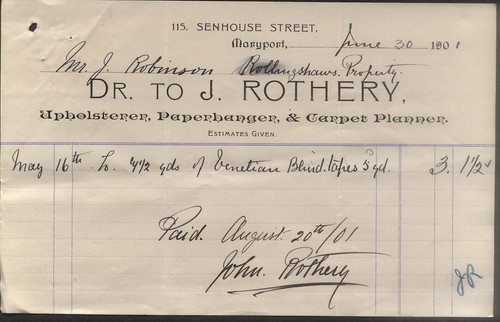 115. SENHOUSE STREET.
Maryport, June 30 1901
Mr. J. Robinson Rollingshaws. Property.
DR. TO J. ROTHERY,
Upholsterer, Paperhanger, & Carpet Planner.
ESTIMATES GIVEN.
May 16th To 4 1/2 yds of Venetian Blind. tapes yd. 3. 1 1/2
Paid. August. 20th/01
John. Rothery
JR